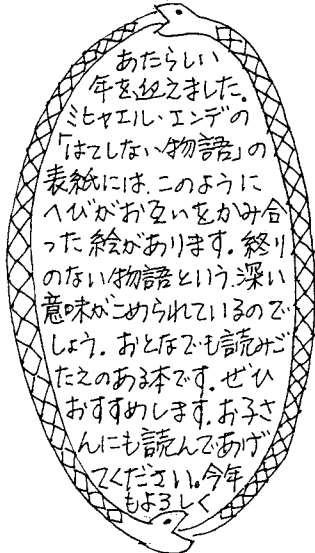 あたらしい
年を迎えました。
ミヒャエル・エンデの
「はてしない物語」の
表紙には、このように
へびがお互いをかみ合
った絵があります。終り
のない物語という、深い
意味がこめられているので
しょう。おとなでも読みご
たえのある本です。ぜひ
おすすめします。お子さ
んにも読んであげ
てください。今年
もよろしく